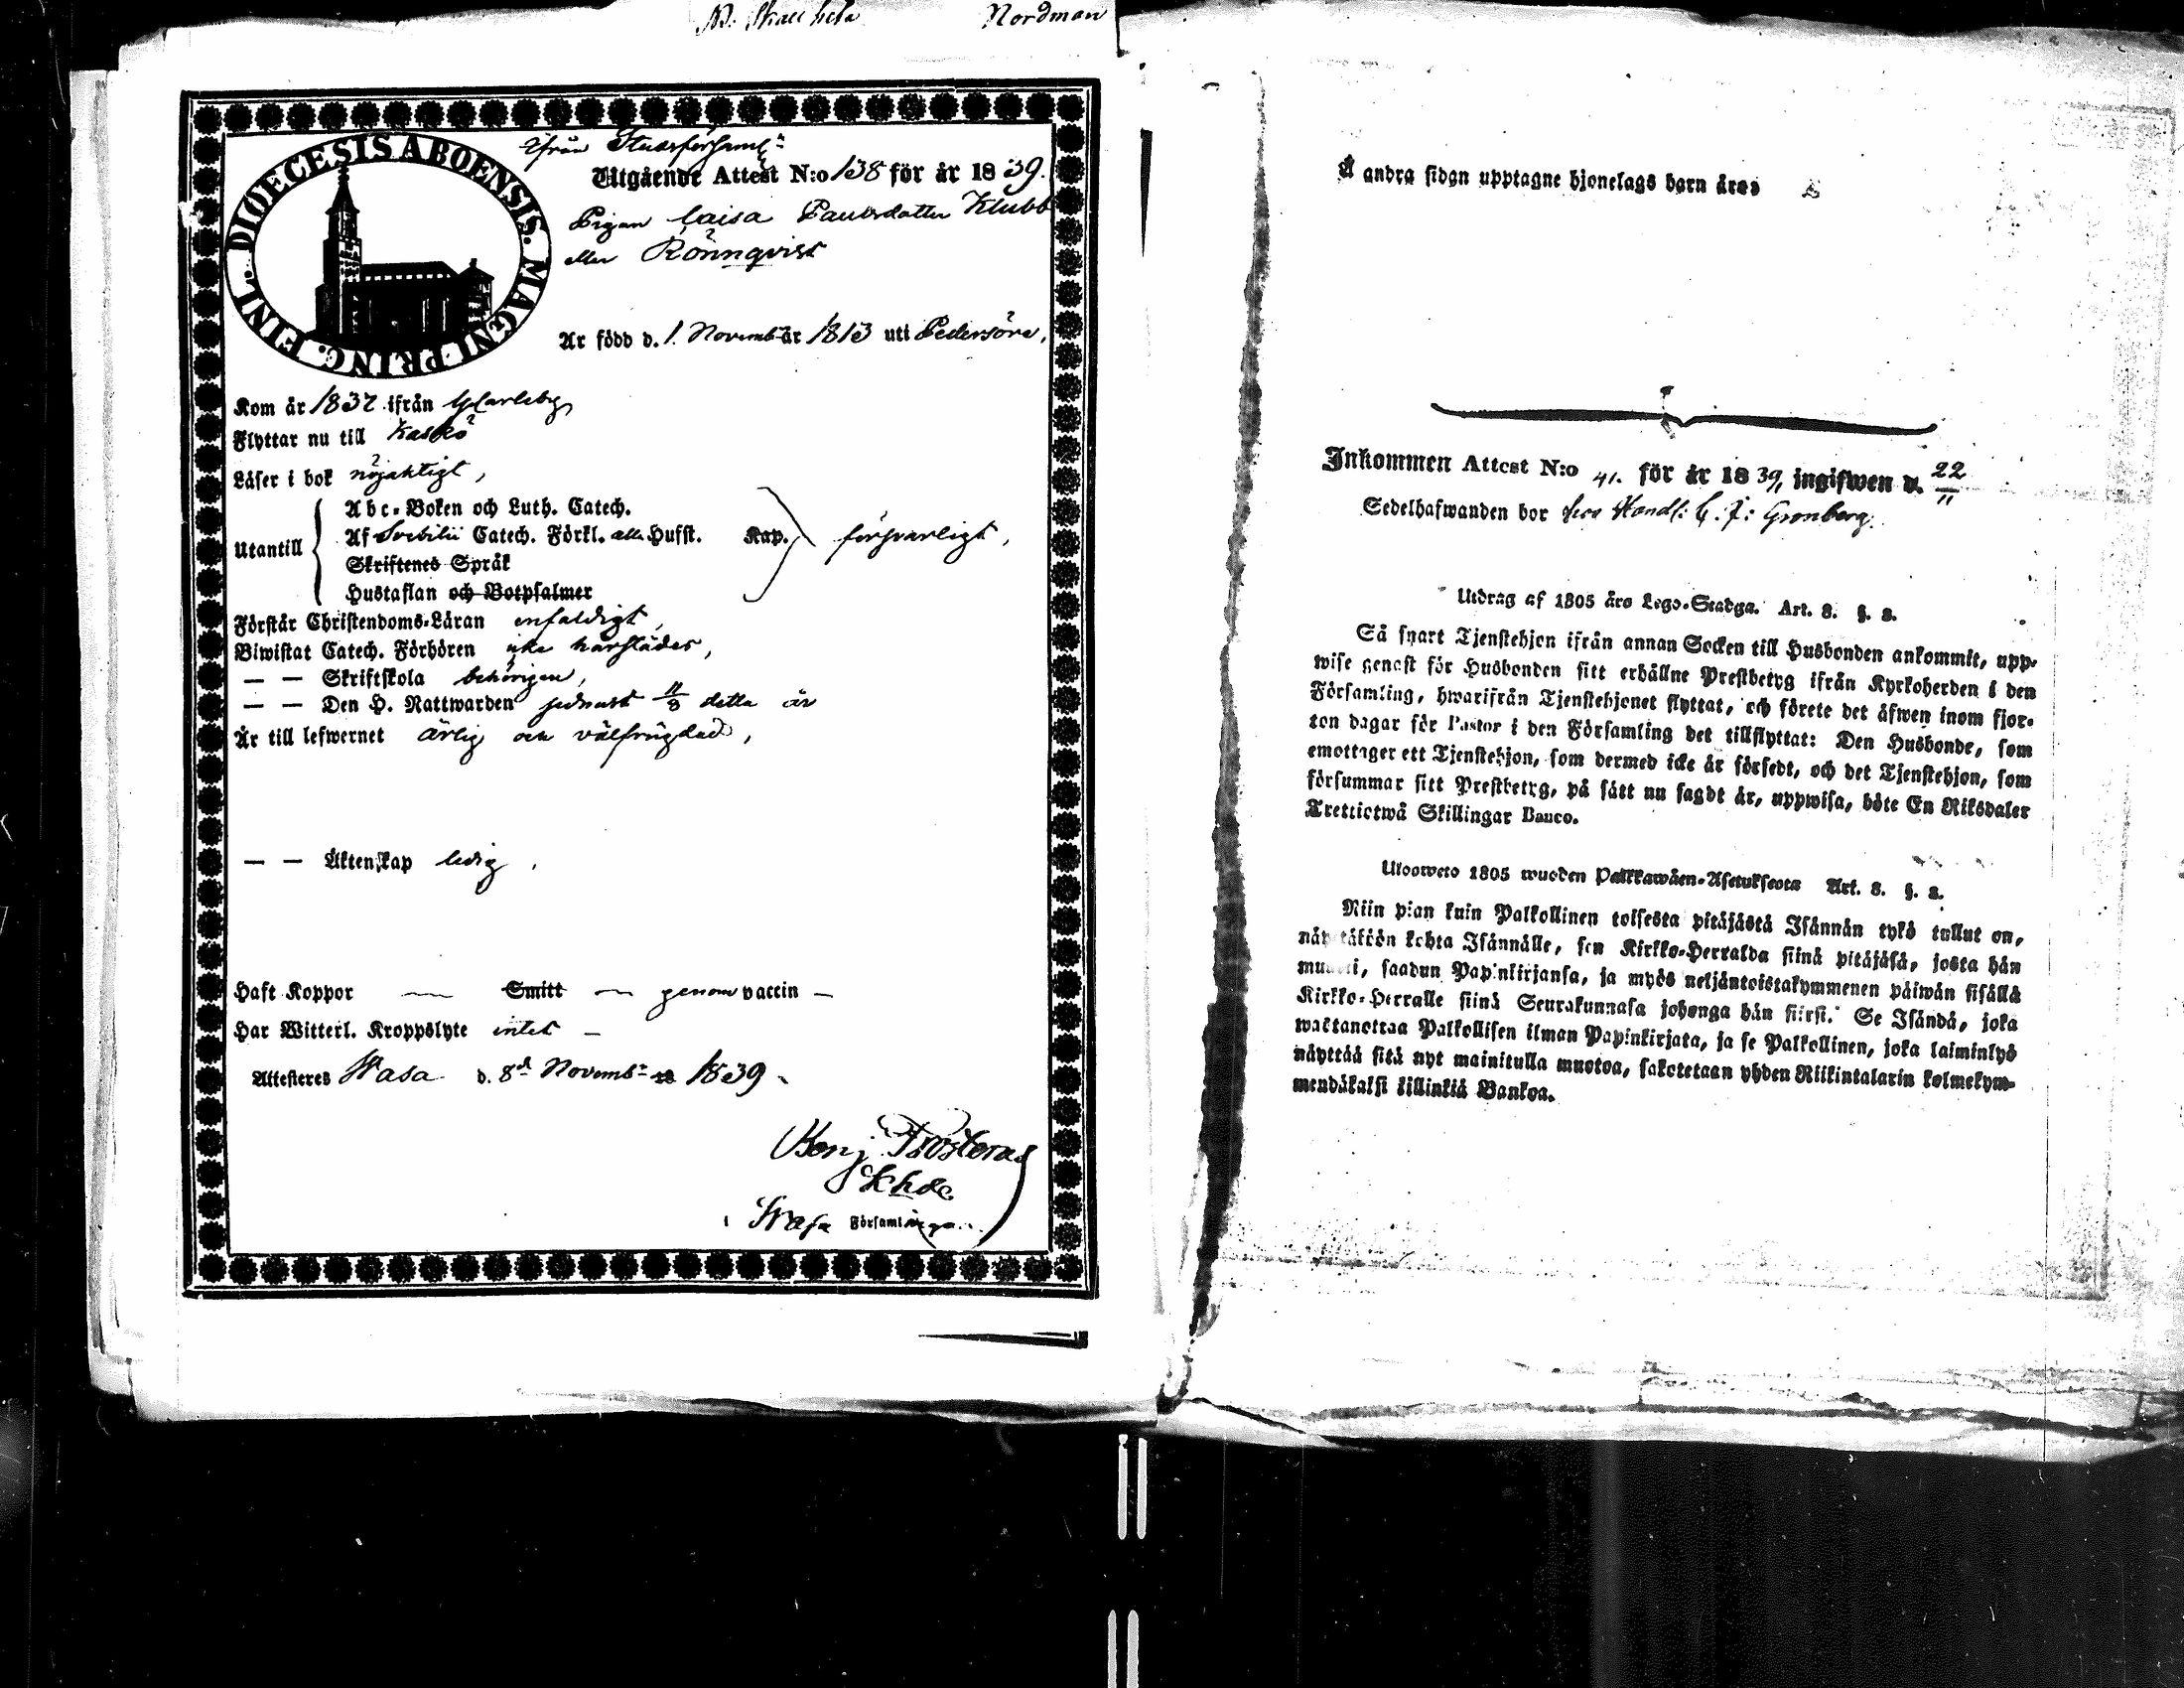 Nordman
DIOECESIS ABOENSIS. MAGNI PRINC. FINL.
ifrån Stadsförsaml:
Utgående Attest N:o 138 för år 1839.
Pigan Caisa Paulsdotter Klubb
eller Rönnqvist
Är född d. 1. Novemb. år 1813 uti Pedersöre,
Kom år 1837 ifrån Gl Carleby
Flyttar nu till Kaskö
Läser i bok nöjaktigt,
Utantill
Abc-Boken och Luth. Catech.
Af Svebilii Catech. Förkl. alla Hufst. Kap. försvarligt,
Skriftenes Språk
Hustaflan och Botpsalmer
Förstår Christendoms-Läran enfaldigt,
Biwistat Catech. Förhören icke härstädes,
— — Skriftskola behörigen,
— — Den H. Nattwarden senast detta år
Är till lefwernet ärlig och välfrägdad,
— — Äktenskap ledig,
Haft Koppor — Smitt — genom vaccin —
Har Witterl. Kroppslyte intet —
Attesteres Wasa d. 8de Novemb: 1839.
Benj. Frosterus
Khde
i Wasa Församlingar
Å andra sidan upptagne hjonelags barn äro:
Inkommen Attest N:o 41. för år 1839, ingifwen d. 22/11
Sedelhafwanden bor hos Handl: C. J: Grönberg.
Utdrag af 1805 års Lego-Stadga. Art. 8. §. 2.
Så snart Tjenstehjon ifrån annan Socken till Husbonden ankommit, upp-
wise genast för Husbonden sitt erhållne Prestbetyg ifrån Kyrkoherden i den
Församling, hwarifrån Tjenstehjonet flyttat, och förete det äfwen inom fjor-
ton dagar för Pastor i den Församling det tillflyttat: Den Husbonde, som
emottager ett Tjenstehjon, som dermed icke är försedt, och det Tjenstehjon, som
försummar sitt Prestbetyg, på sätt nu sagdt är, uppwisa, böte En Riksdaler
Trettiotwå Skillingar Banco.
Ulosweto 1805 wuoden Palkkawäen-Asetuksesta Art. 8. §. 2.
Niin pian kuin Palkollinen toisesta pitäjästä Isännän tykö tullut on,
näyttäköön kohta Isännälle, sen Kirkko-Herralda siinä pitäjäsä, josta hän
muutti, saadun Papinkirjansa, ja myös neljäntoistakymmenen päiwän sisällä
Kirkko-Herralle siinä Seurakunnasa johonga hän siirsi. Se Isändä, joka
wastanottaa Palkollisen ilman Papinkirjata, ja se Palkollinen, joka laiminlyö
näyttää sitä nyt mainitulla muotoa, sakotetaan yhden Riikintalarin kolmekym-
mendäkaksi killinkiä Bankoa.